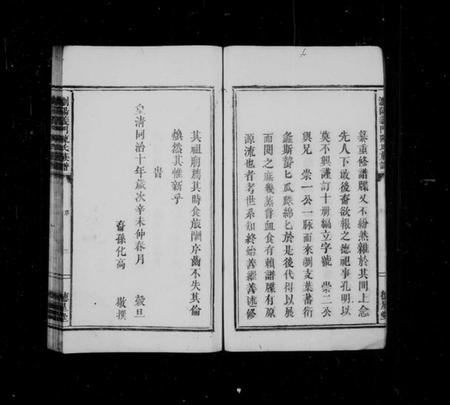 纂重修譜牒又不紛然雜於其間上念
先人下啟後裔欲報之德祀事孔明以
莫不興謹訂十册編立字號 崇二公
與兄 崇一公一脈而來樹支葉蕃衍
螽斯蟄蟄瓜瓞綿綿於是後代得以展
而閱之庶幾蒸嘗血食有賴譜牒有原
源流也者考世系知終始善繼善述修
其祖廟薦其時食旅酬序齒不失其倫
煥然其惟新乎
時
皇清同治十年歲次辛未仲春月 穀旦
裔孫化高 敬撰